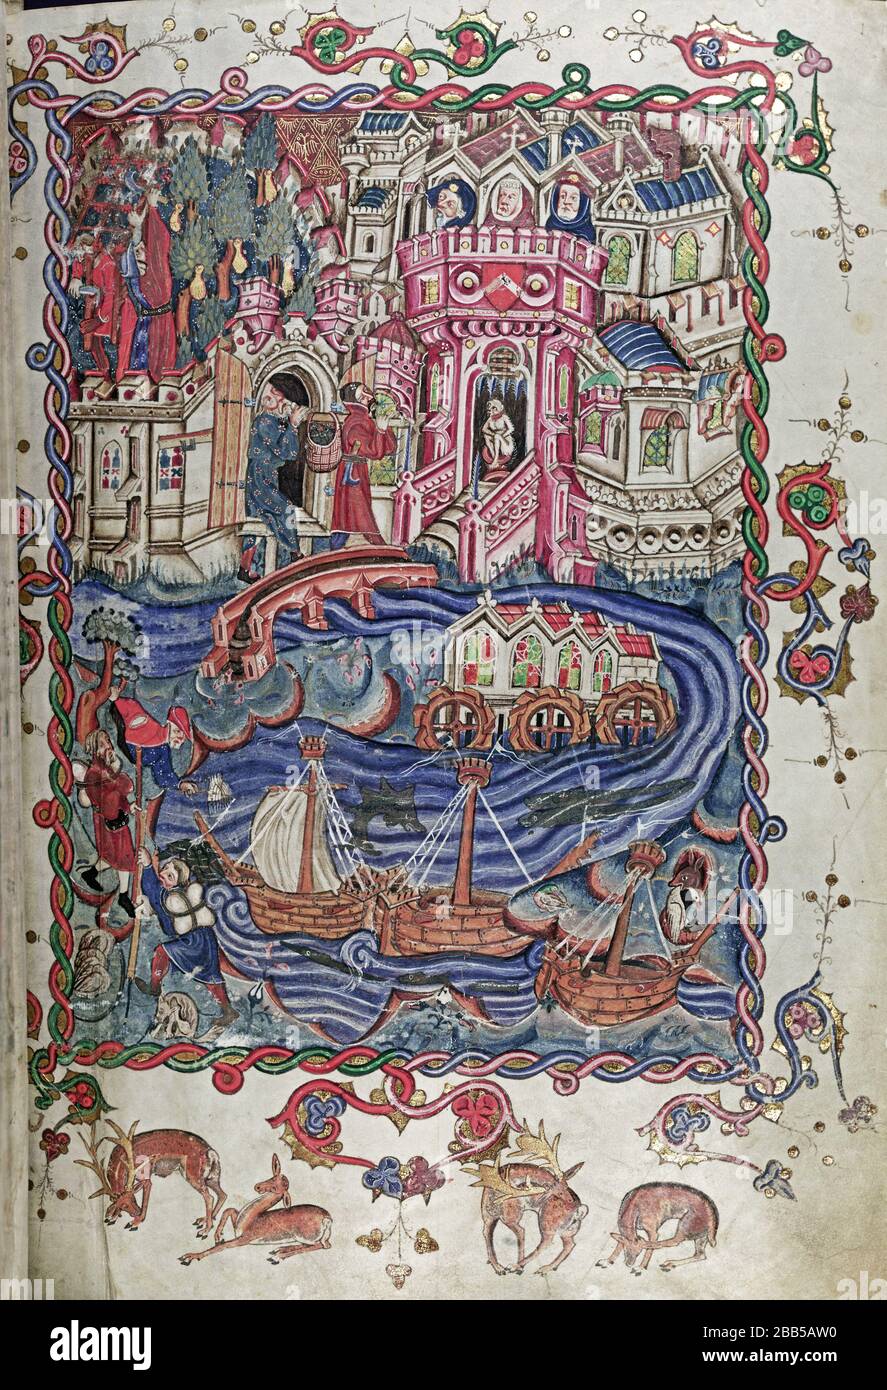 alamy
Image ID: 2BB5AW0
www.alamy.com